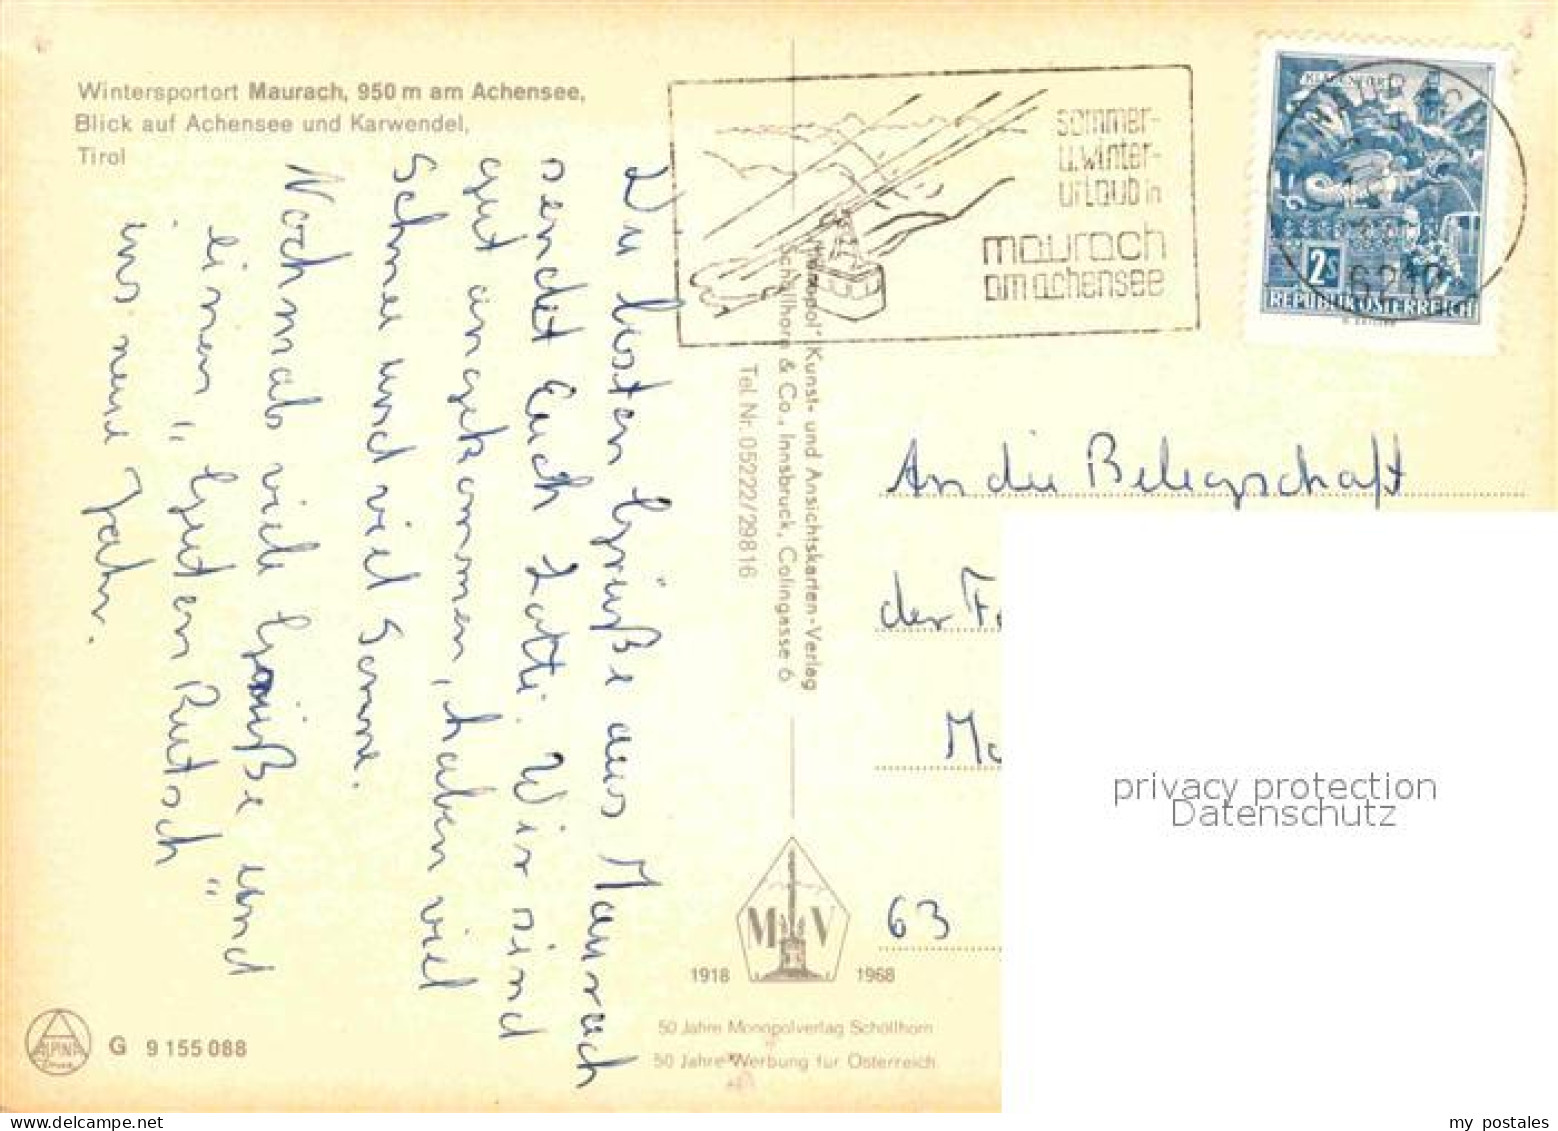 Wintersportort Maurach, 950 m am Achensee,
Blick auf Achensee und Karwendel,
Tirol
sommer-
u. winter-
urlaub in
maurach
am achensee
KLAGENFURT
2S
REPUBLIK ÖSTERREICH
MAURACH
6212
Die besten Grüße aus Maurach
sendet Euch Lotti. Wir sind
gut angekommen, haben viel
Schnee und viel Sonne.
Nochmals viele Grüße und
einen „Guten Rutsch"
ins neue Jahr.
"Monopol" Kunst- und Ansichtskarten-Verlag
Schöllhorn & Co., Innsbruck, Colingasse 6
Tel. Nr. 05222/29816
An die Belegschaft
der
63
privacy protection
Datenschutz
M V
1918 1968
50 Jahre Monopolverlag Schöllhorn
50 Jahre Werbung für Österreich
ALPINA
Druck
G 9 155 088
delcampe.net
my_postales